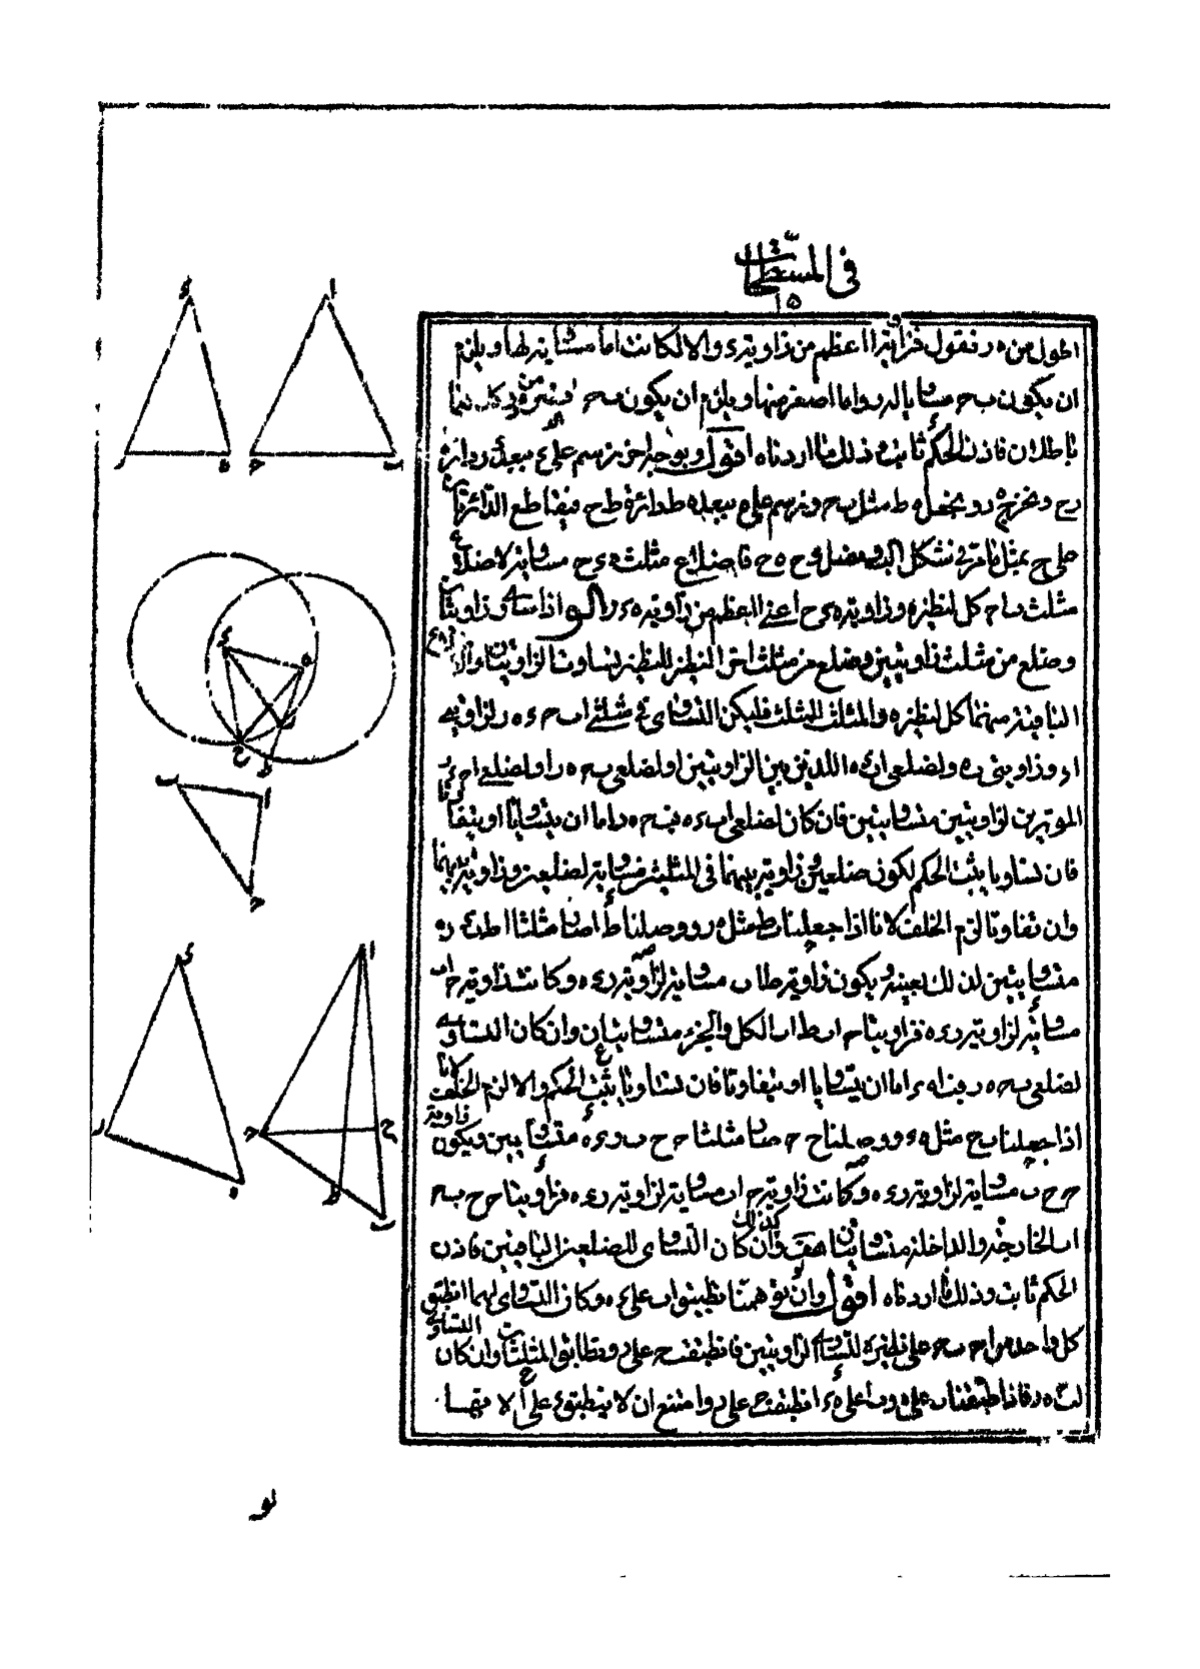 في المسطحات
١٥
اطول من ه ر فنقول فزاوية ا اعظم من زاوية ء والا لكانت اما مساوية لها ويلزم
ان يكون ب ح مساويا له ر واما اصغر منها ويلزم ان يكون ب ح اصغر من ه ر وكلاهما
باطلان فاذن الحكم ثابت وذلك ما اردناه اقول وبوجه اخر نرسم على ء ببعد ء ر دائرة
ر ح ونخرج ه ر ونجعل ه ط مثل ب ح ونرسم على ه ببعد ه ط دائرة ط ح فيتقاطع الدائرتان
على ح بمثل ما مر في شكل ونصل ء ح ه ح فاضلاع مثلث ه ء ح مساوية لاضلاع
مثلث ب ا ح كل لنظيره وزاوية ه ء ح اعني ا اعظم من زاوية ه ء ر اذا ساوى زاويتان
وضلع من مثلث زاويتين وضلع من مثلث اخر النظير للنظير تساوت الزاويتان والاضلاع
الباقية منهما كل لنظيره والمثلث للمثلث فليكن التساوي في مثلثي ا ب ح ء ه ر لزاويتي
ا ء وزاويتي ب ه ولضلعي ا ب ء ه اللذين بين الزاويتين او لضلعي ب ح ه ر او لضلعي ا ح ء ر
الموترين لزاويتين متساويتين فان كان لضلعي ا ب ء ه فب ح ه ر اما ان يتساويا او يتفاوتا
فان تساويا يثبت الحكم لكون ضلعين وزاوية بينهما في المثلثين مساوية لضلعين وزاوية بينهما
وان تفاوتا لزم الخلف لانا اذا جعلنا ب ط مثل ه ر ووصلنا ط ا صار مثلثا ا ط ب ء ر ه
متساويين لذلك بعينه ويكون زاوية ط ا ب مساوية لزاوية ر ء ه وكانت زاوية ح ا ب
مساوية لزاوية ر ء ه فزاويتا ح ا ب ط ا ب الكل والجزء متساويتان وان كان التساوي
لضلعي ب ح ه ر فب ا ه ء اما ان يتساويا او يتفاوتا فان تساويا يثبت الحكم والا لزم الخلف لانا
اذا جعلنا ب ح مثل ه ء ووصلنا ح ح صار مثلثا ح ح ب ر ء ه متساويين ويكون زاوية
ح ح ب مساوية لزاوية ر ء ه وكانت زاوية ح ا ب مساوية لزاوية ر ء ه فزاويتا ح ح ب ح
ا ب الخارجة والداخلة متساويتان هف وكذلك ان كان التساوي للضلعين الباقيين فاذن
الحكم ثابت وذلك ما اردناه اقول وان توهمنا تطبيق ا ب على ء ه وكان التساوي لهما انطبق
كل واحد من ا ح ب ح على نظيره لتساوي الزاويتين فانطبقت ح على ر وتطابق المثلثان وان كان التساوي
لب ح ه ر فاذا طبقنا ب ح على ه ر وب ا على ه ء انطبقت ح على ر وامتنع ان لا ينطبق ء على ا لانهما
لو
ء
ا
ر
ه
ح
ب
ء
ه
ر
ح
ط
ب
ا
ح
ء
ا
ر
ح
ح
ه
ط
ب